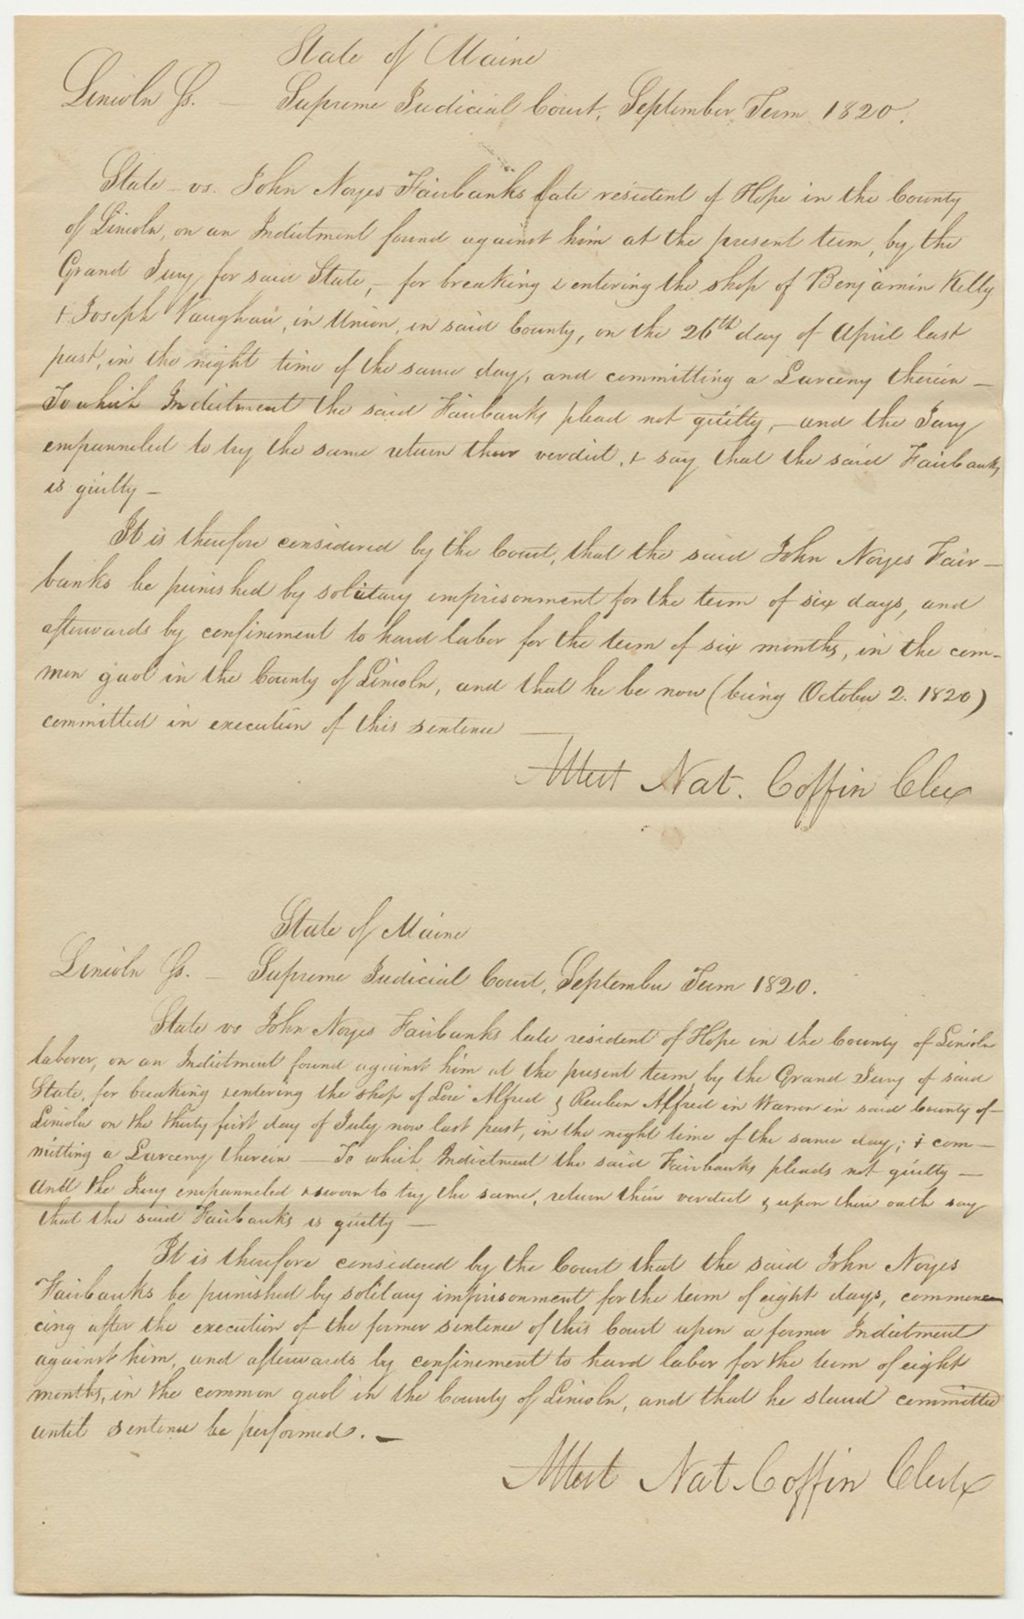 State of Maine
Lincoln Ss. — Supreme Judicial Court, September Term 1820.
State vs. John Noyes Fairbanks late resident of Hope in the County
of Lincoln, on an Indictment found against him at the present term, by the
Grand Jury for said State, – for breaking & entering the shop of Benjamin Kelly
& Joseph Vaughan, in Union, in said County, on the 26th day of April last
past, in the night time of the same day, and committing a Larceny therein —
To which Indictment the said Fairbanks plead not guilty, – and the Jury
empannelled to try the same return their verdict, & say that the said Fairbanks
is guilty —
It is therefore considered by the Court, that the said John Noyes Fair-
banks be punished by solitary imprisonment for the term of six days, and
afterwards by confinement to hard labor for the term of six months, in the com-
mon gaol in the County of Lincoln, and that he be now (being October 2. 1820)
committed in execution of this sentence —
Attest Nat. Coffin Cler
State of Maine
Lincoln Ss. — Supreme Judicial Court, September Term 1820.
State vs John Noyes Fairbanks late resident of Hope in the County of Lincoln
laborer, on an Indictment found against him at the present term, by the Grand Jury of said
State, for breaking & entering the shop of Alfred & Reuben Alfred in Warren in said County of
Lincoln on the thirty first day of July now last past, in the night time of the same day; & com-
mitting a Larceny therein — To which Indictment the said Fairbanks pleads not guilty —
And the Jury empannelled & sworn to try the same, return their verdict & upon their oath say
that the said Fairbanks is guilty —
It is therefore considered by the Court that the said John Noyes
Fairbanks be punished by solitary imprisonment for the term of eight days, commen-
cing after the execution of the former sentence of this Court upon a former Indictment
against him, and afterwards by confinement to hard labor for the term of eight
months, in the common gaol in the County of Lincoln, and that he stand committed
until sentence be performed. —
Attest Nat Coffin Clerk